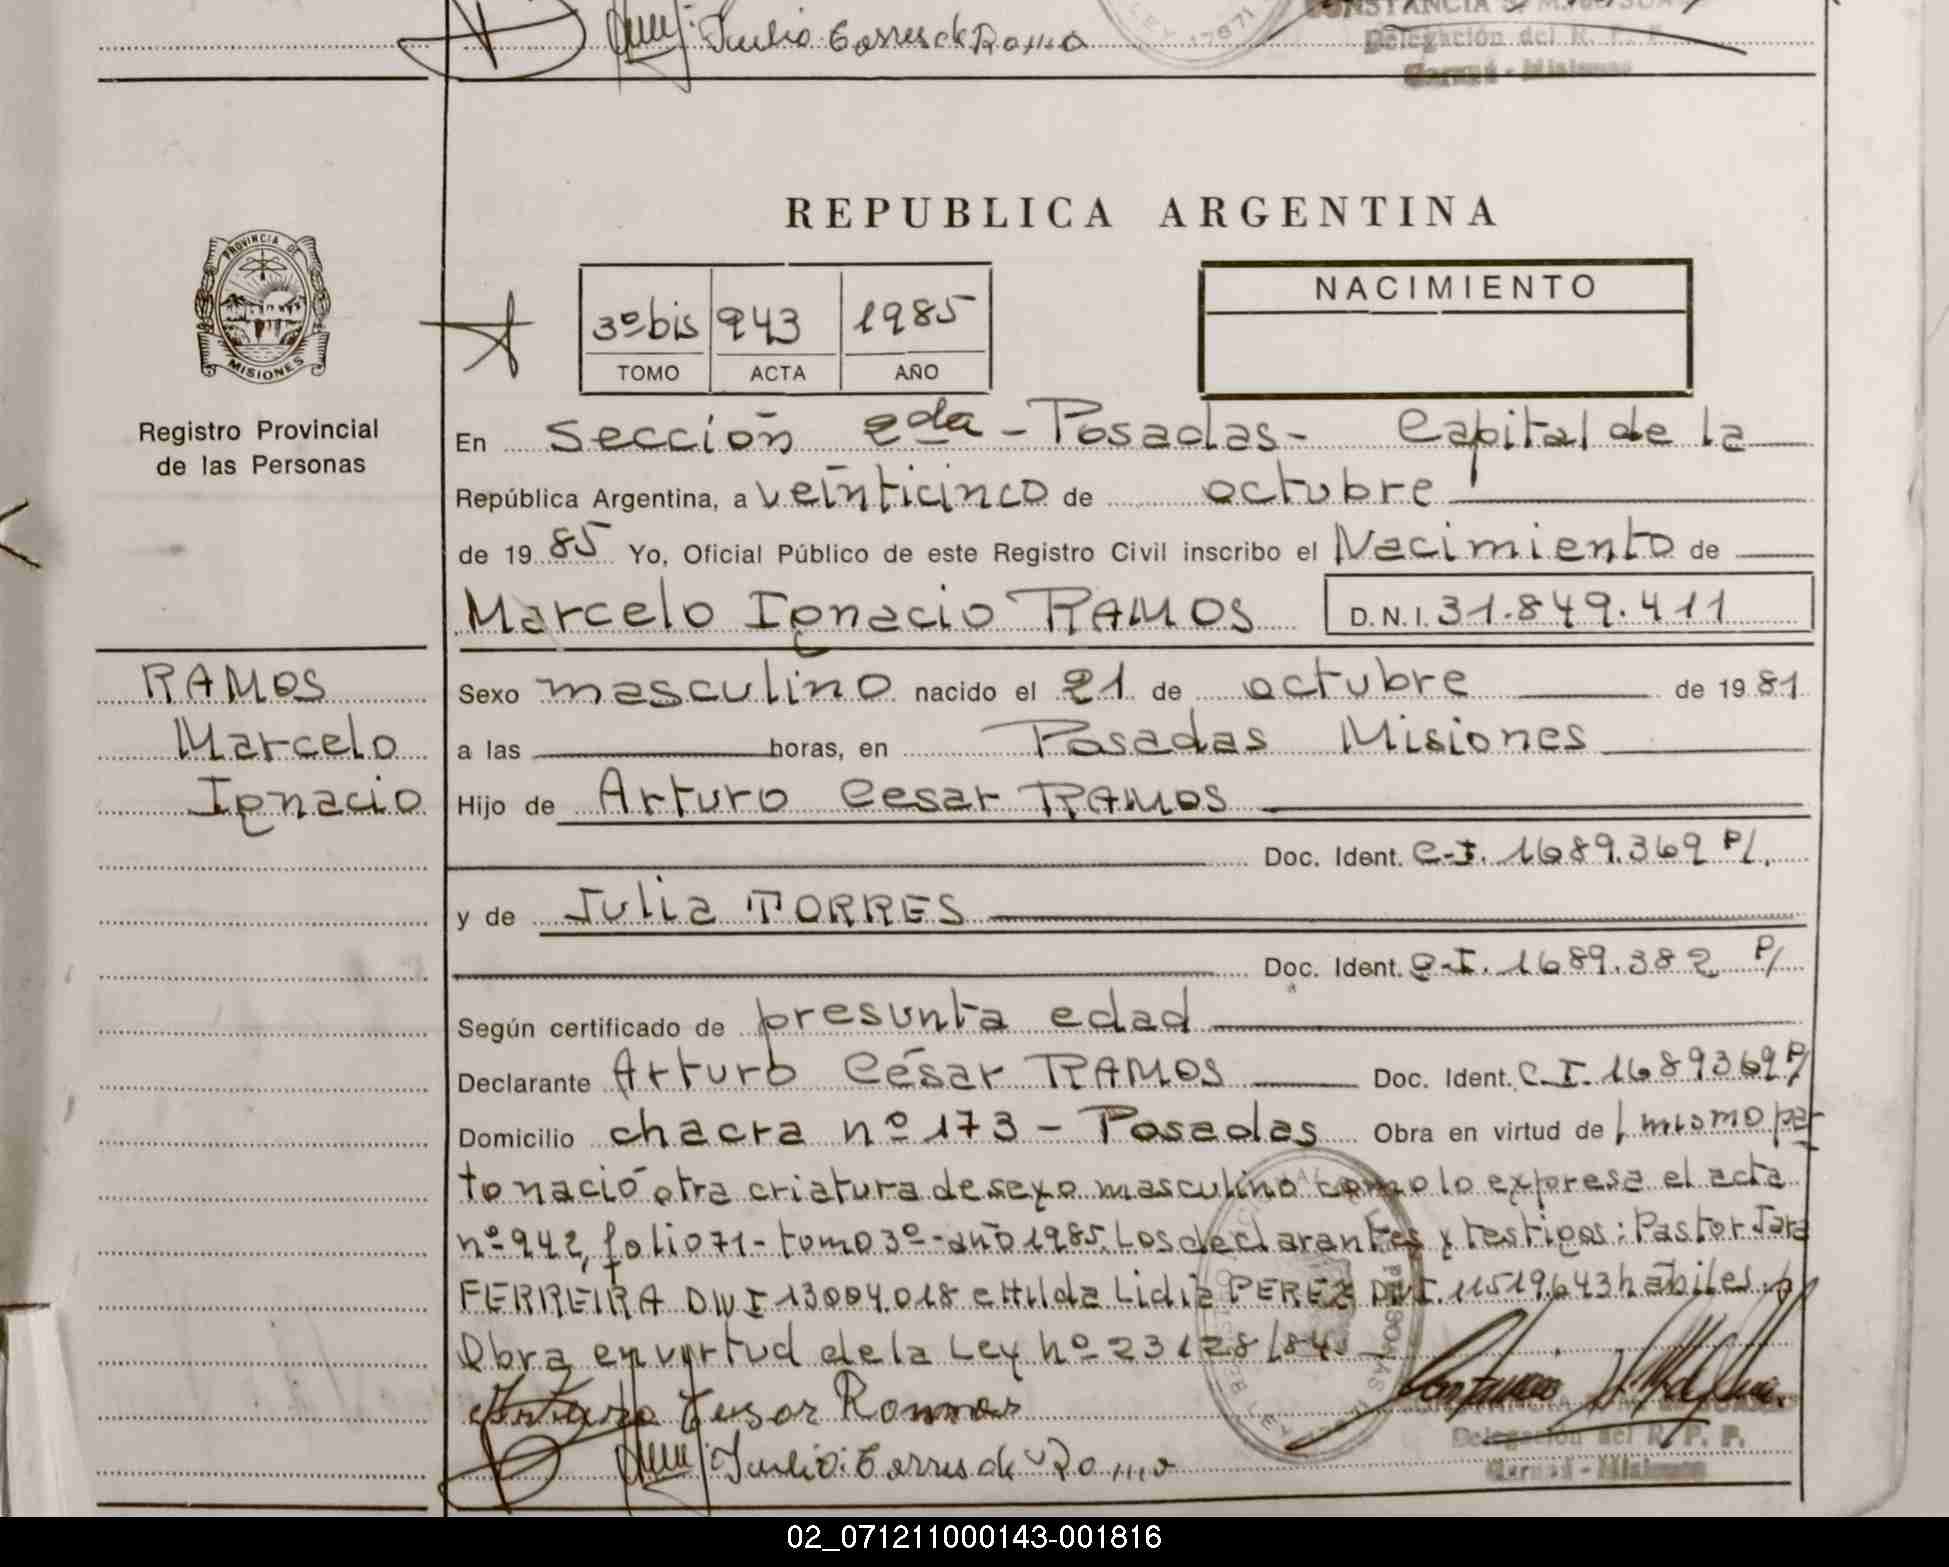 Julio Torres de Ramo
LEY 17671
CONSTANCIA
Delegación del R. P. P.
Garupá - Misiones
REPUBLICA ARGENTINA
PROVINCIA DE
MISIONES
Registro Provincial
de las Personas
3º bis 943 1985
TOMO ACTA AÑO
NACIMIENTO
En Sección 2da - Posadas - Capital de la
República Argentina, a veinticinco de octubre
de 1985 Yo, Oficial Público de este Registro Civil inscribo el Nacimiento de
Marcelo Ignacio RAMOS D.N.I. 31.849.411
RAMOS
Marcelo
Ignacio
Sexo masculino nacido el 21 de octubre de 1981
a las horas, en Posadas Misiones
Hijo de Arturo Cesar RAMOS
Doc. Ident. C.I. 1689.369 P/.
y de Julia TORRES
Doc. Ident. C.I. 1689.382 P/
Según certificado de presunta edad
Declarante Arturo César RAMOS Doc. Ident. C.I. 1689369 P/
Domicilio chacra nº 173 - Posadas Obra en virtud de / mismo par-
to nació otra criatura de sexo masculino como lo expresa el acta
nº 942, folio 71 - tomo 3º - año 1985. Los declarantes y testigos: Pastor Jara
FERREIRA DNI 13004.018 e Hilda Lidia PEREZ DNI. 11519.643 hábiles.
Obra en virtud de la Ley nº 23128/84
Arturo Cesar Ramos
Julio Torres de Ramo
Delegación del R. P. P.
Garupá - Misiones
02_071211000143-001816